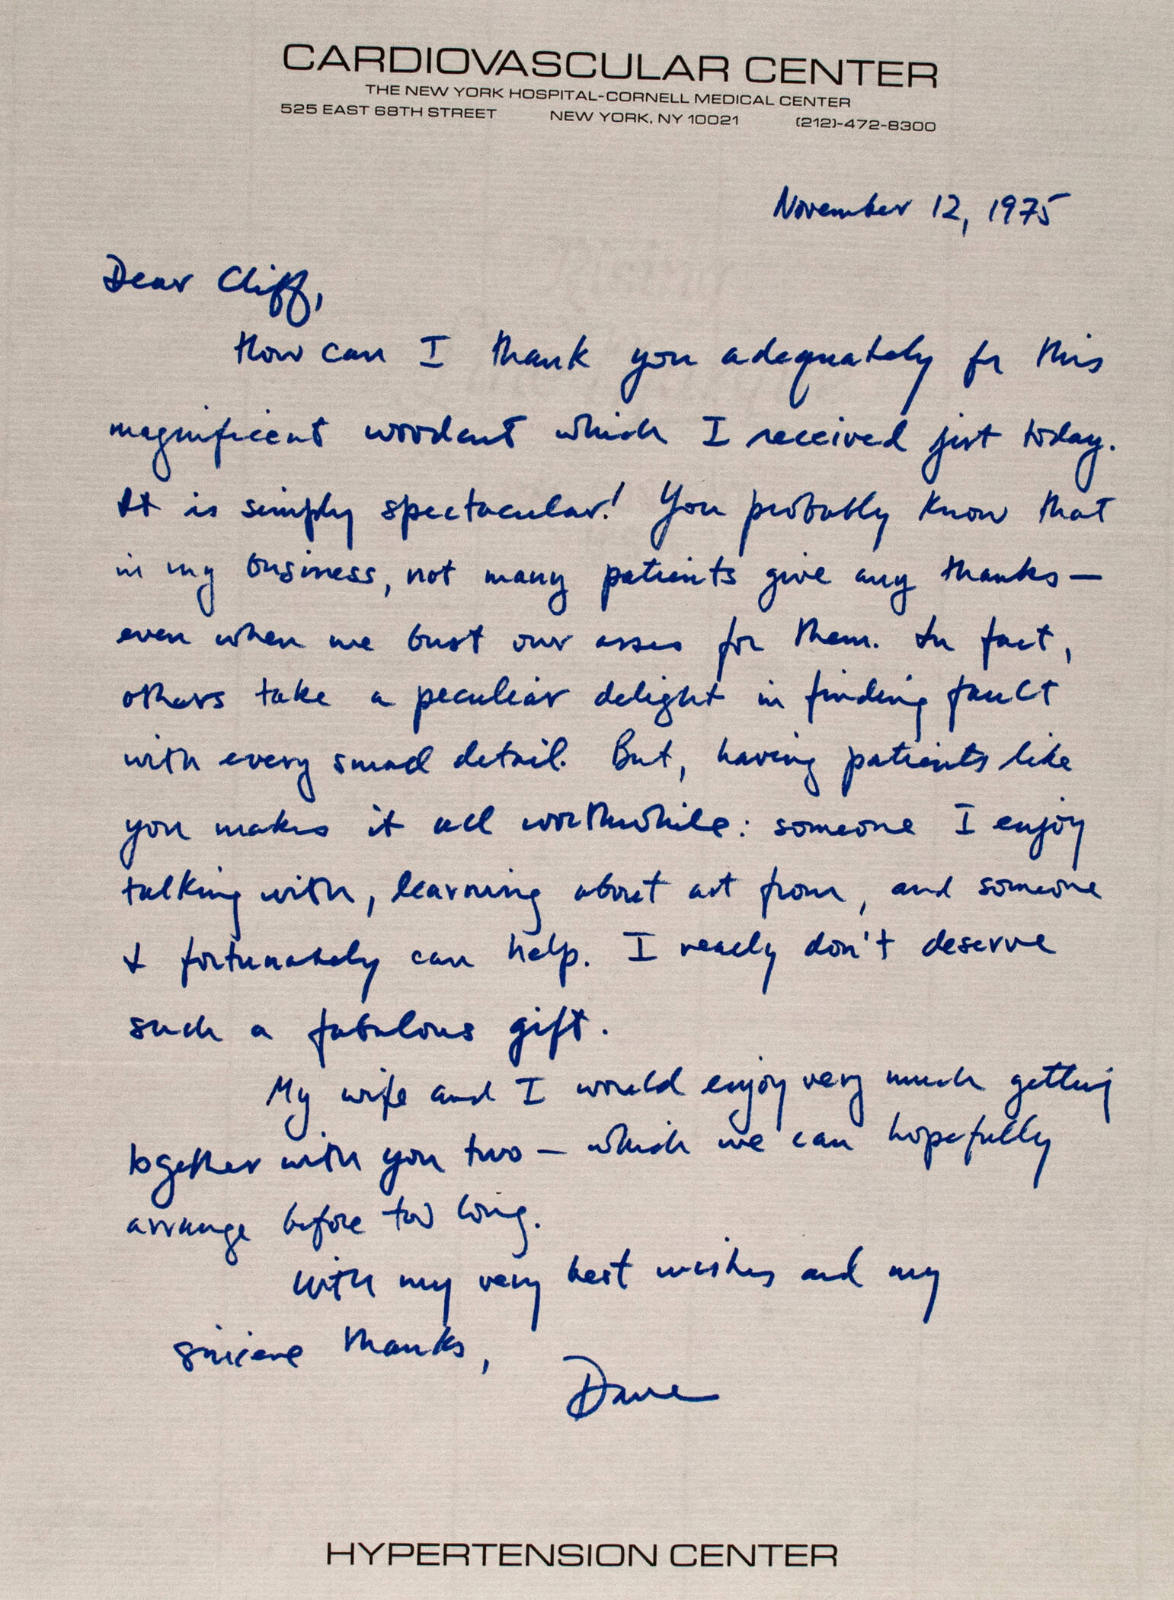 CARDIOVASCULAR CENTER
THE NEW YORK HOSPITAL-CORNELL MEDICAL CENTER
525 EAST 68TH STREET NEW YORK, NY 10021 (212)-472-8300
November 12, 1975
Dear Cliff,
How can I thank you adequately for this
magnificent woodcut which I received just today.
It is simply spectacular! You probably know that
in my business, not many patients give any thanks —
even when we bust our asses for them. In fact,
others take a peculiar delight in finding fault
with every small detail. But, having patients like
you makes it all worthwhile: someone I enjoy
talking with, learning about art from, and someone
I fortunately can help. I really don't deserve
such a fabulous gift.
My wife and I would enjoy very much getting
together with you two — which we can hopefully
arrange before too long.
With my very best wishes and my
sincere thanks,
Dave
HYPERTENSION CENTER